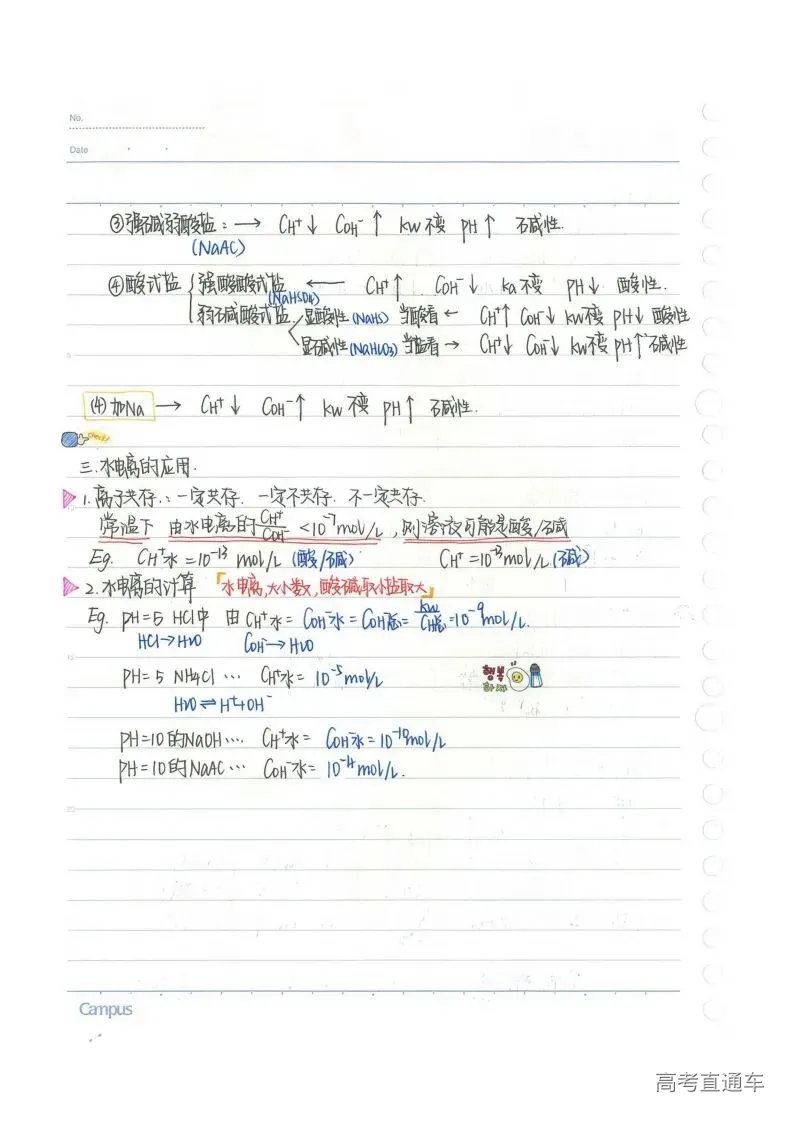 No.
Date
③强碱弱酸盐: → CH⁺↓ COH⁻↑ kw不变 pH↑ 碱性.
(NaAC)
④酸式盐 { 强酸酸式盐 ← CH⁺↑ COH⁻↓ ka不变 pH↓ 酸性.
(NaHSO4)
弱石碱酸式盐 显酸性(NaHS) 当酸看 ← CH⁺↑ COH⁻↓ kw不变 pH↓ 酸性
显碱性(NaHCO3) 当盐看 → CH⁺↓ COH⁻↓ kw不变 pH↑ 碱性
(4)加Na → CH⁺↓ COH⁻↑ kw不变 pH↑ 碱性.
check!
三.水电离的应用.
1.离子共存.: 一定共存. 一定不共存. 不一定共存.
常温下 由水电离的CH⁺/COH⁻ <10⁻⁷mol/L, 则溶液可能是酸/碱
Eg. CH⁺水=10⁻¹³ mol/L (酸/碱) CH⁺=10⁻¹³mol/L.(碱)
2.水电离的计算 「水电离,大小数,酸碱取小盐取大」
Eg. pH=5 HCl中 由CH⁺水= COH⁻水=COH⁻总=kw/CH⁺总=10⁻⁹mol/L.
HCl→H2O COH⁻→H2O
pH=5 NH4Cl … CH⁺水= 10⁻⁵mol/L
H2O⇌H⁺+OH⁻
행복
하자
pH=10的NaOH… CH⁺水= COH⁻水=10⁻¹⁰mol/L
pH=10的NaAC … COH⁻水= 10⁻⁴mol/L.
Campus
高考直通车